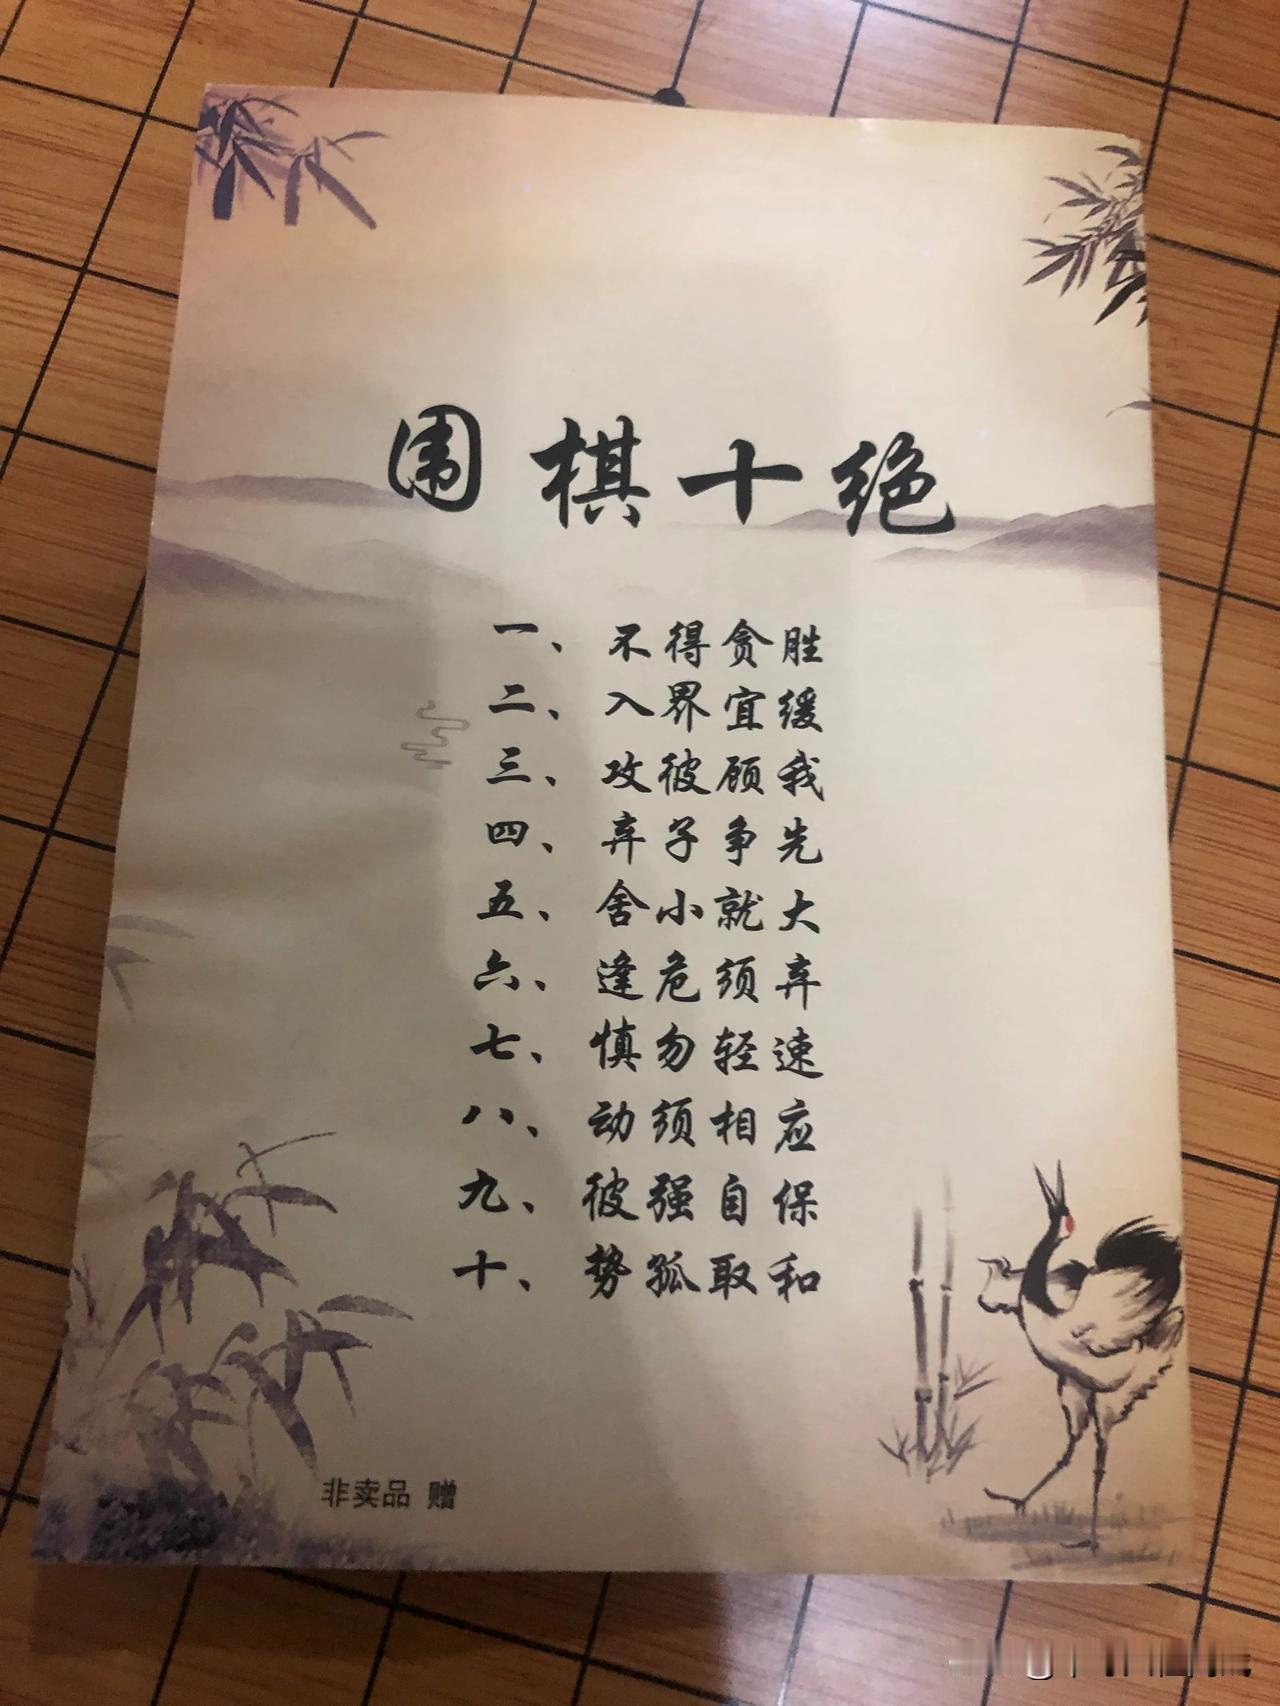 围棋十绝
一、不得贪胜
二、入界宜缓
三、攻彼顾我
四、弃子争先
五、舍小就大
六、逢危须弃
七、慎勿轻速
八、动须相应
九、彼强自保
十、势孤取和
非卖品 赠